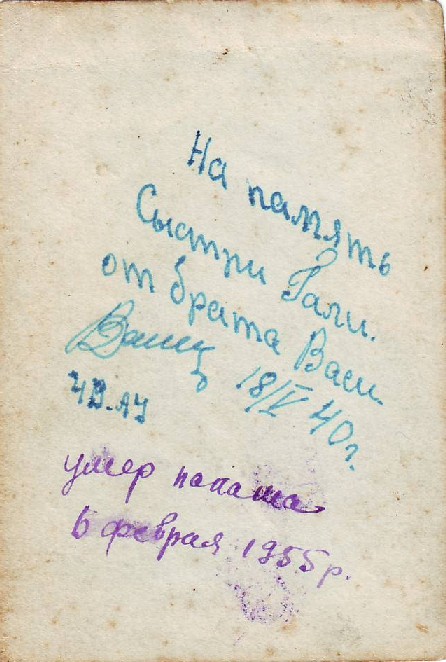 На память
Сыстри Гали.
от брата Васи.
18/V 40 г.
умер папаша
6 февраля 1955 р.